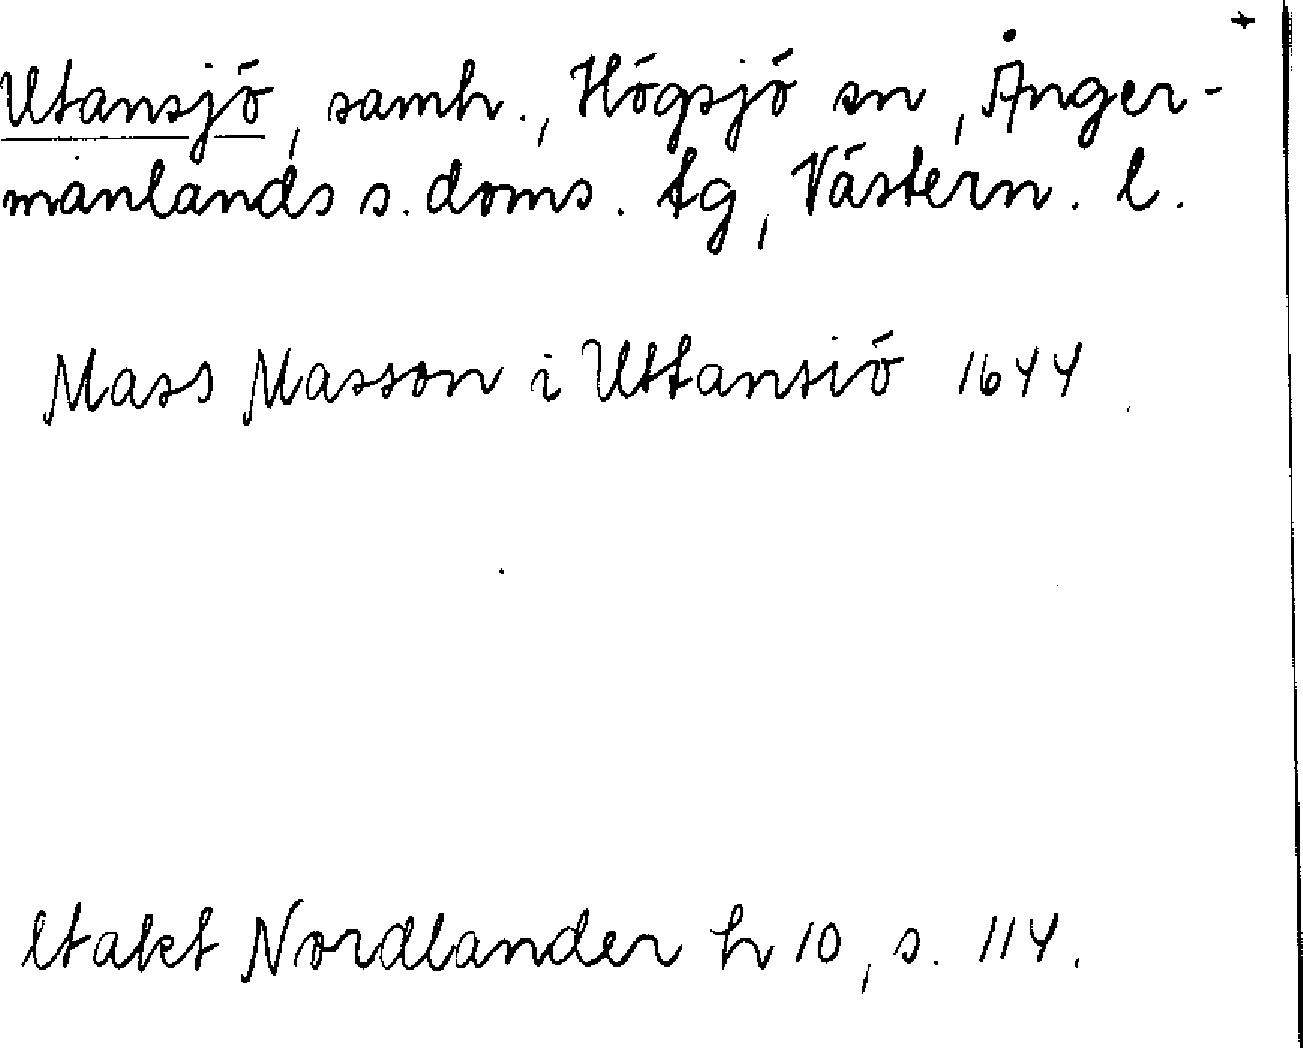 Utansjö, samh., Högsjö sn, Ånger-
manlands s. doms. tg, Västern. l.
Mass Masson i Uttansiö 1644
Itakt Nordlander h 10, s. 114.